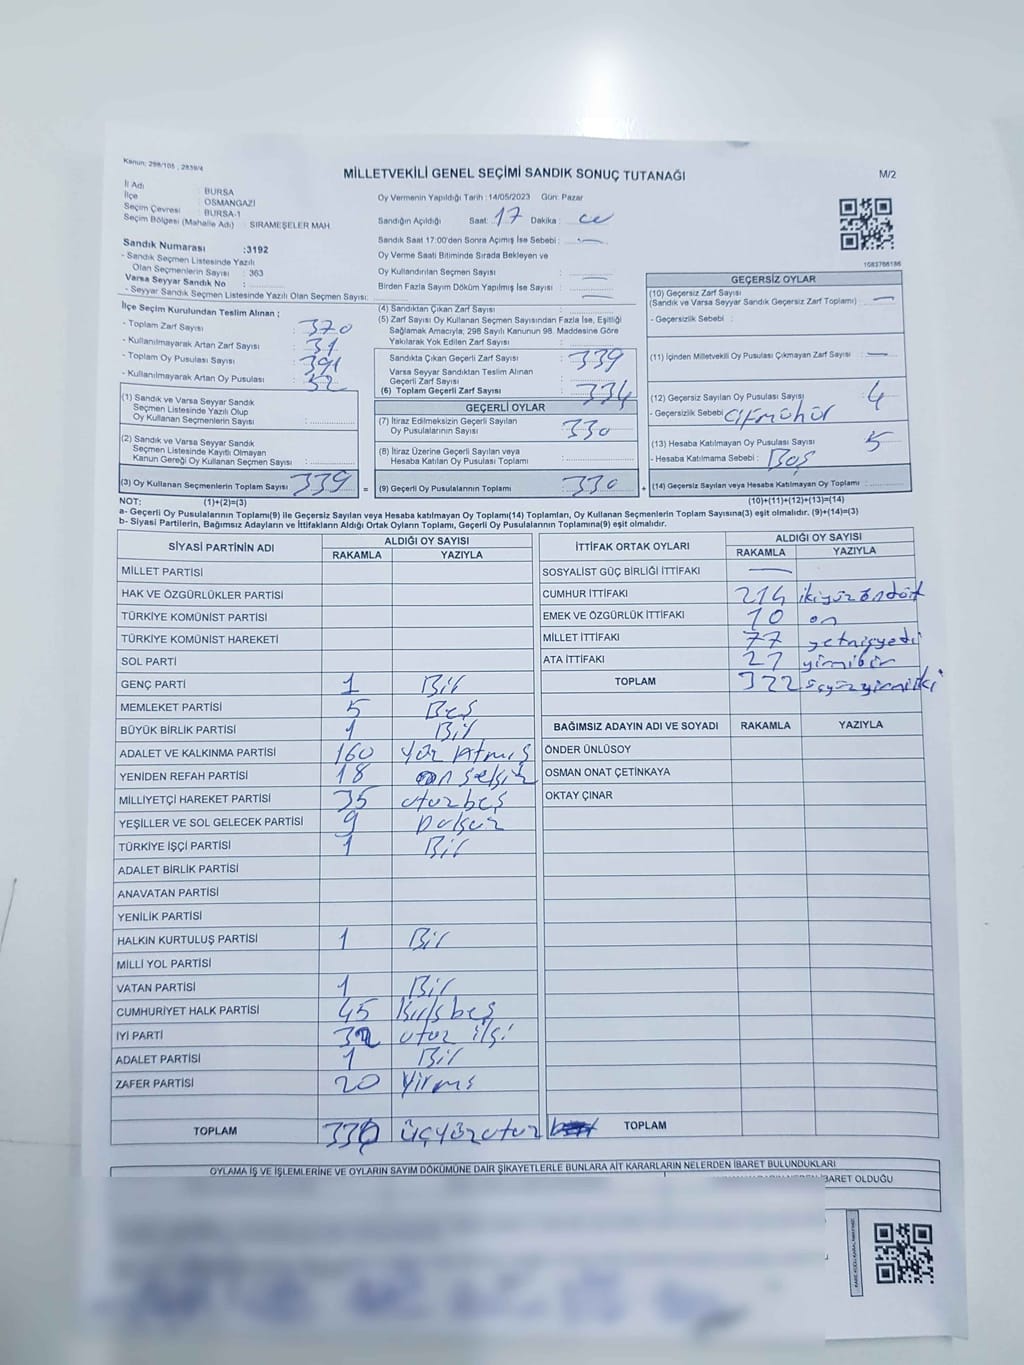 Kanun: 298/105 , 2839/4
MİLLETVEKİLİ GENEL SEÇİMİ SANDIK SONUÇ TUTANAĞI
M/2
İl Adı : BURSA
İlçe : OSMANGAZİ
Seçim Çevresi : BURSA-1
Seçim Bölgesi (Mahalle Adı) : SIRAMEŞELER MAH.
Oy Vermenin Yapıldığı Tarih : 14/05/2023 Gün: Pazar
Sandığın Açıldığı Saat: 17 Dakika :
Sandık Saat 17:00'den Sonra Açımış İse Sebebi : —
Oy Verme Saati Bitiminde Sırada Bekleyen ve
Oy Kullandırılan Seçmen Sayısı : —
Birden Fazla Sayım Döküm Yapılmış İse Sayısı : —
1083766186
Sandık Numarası :3192
- Sandık Seçmen Listesinde Yazılı
Olan Seçmenlerin Sayısı : 363
Varsa Seyyar Sandık No :
- Seyyar Sandık Seçmen Listesinde Yazılı Olan Seçmen Sayısı:
İlçe Seçim Kurulundan Teslim Alınan ;
- Toplam Zarf Sayısı : 370
- Kullanılmayarak Artan Zarf Sayısı : 31
- Toplam Oy Pusulası Sayısı : 391
- Kullanılmayarak Artan Oy Pusulası : 52
(1) Sandık ve Varsa Seyyar Sandık
Seçmen Listesinde Yazılı Olup
Oy Kullanan Seçmenlerin Sayısı :
(2) Sandık ve Varsa Seyyar Sandık
Seçmen Listesinde Kayıtlı Olmayan
Kanun Gereği Oy Kullanan Seçmen Sayısı :
(3) Oy Kullanan Seçmenlerin Toplam Sayısı : 339
(4) Sandıktan Çıkan Zarf Sayısı :
(5) Zarf Sayısı Oy Kullanan Seçmen Sayısından Fazla İse, Eşitliği
Sağlamak Amacıyla; 298 Sayılı Kanunun 98. Maddesine Göre
Yakılarak Yok Edilen Zarf Sayısı :
Sandıkta Çıkan Geçerli Zarf Sayısı : 339
Varsa Seyyar Sandıktan Teslim Alınan
Geçerli Zarf Sayısı :
(6) Toplam Geçerli Zarf Sayısı : 334
GEÇERLİ OYLAR
(7) İtiraz Edilmeksizin Geçerli Sayılan
Oy Pusulalarının Sayısı : 330
(8) İtiraz Üzerine Geçerli Sayılan veya
Hesaba Katılan Oy Pusulası Toplamı :
= (9) Geçerli Oy Pusulalarının Toplamı : 330 +
GEÇERSİZ OYLAR
(10) Geçersiz Zarf Sayısı
(Sandık ve Varsa Seyyar Sandık Geçersiz Zarf Toplamı) : —
- Geçersizlik Sebebi :
(11) İçinden Milletvekili Oy Pusulası Çıkmayan Zarf Sayısı : —
(12) Geçersiz Sayılan Oy Pusulası Sayısı : 4
- Geçersizlik Sebebi :
(13) Hesaba Katılmayan Oy Pusulası Sayısı : 5
- Hesaba Katılmama Sebebi : Boş
(14) Geçersiz Sayılan veya Hesaba Katılmayan Oy Toplamı :
NOT: (1)+(2)=(3) (10)+(11)+(12)+(13)=(14)
a- Geçerli Oy Pusulalarının Toplamı(9) ile Geçersiz Sayılan veya Hesaba katılmayan Oy Toplamı(14) Toplamları, Oy Kullanan Seçmenlerin Toplam Sayısına(3) eşit olmalıdır. (9)+(14)=(3)
b- Siyasi Partilerin, Bağımsız Adayların ve İttifakların Aldığı Ortak Oyların Toplamı, Geçerli Oy Pusulalarının Toplamına(9) eşit olmalıdır.
SİYASİ PARTİNİN ADI ALDIĞI OY SAYISI
RAKAMLA YAZIYLA
MİLLET PARTİSİ
HAK VE ÖZGÜRLÜKLER PARTİSİ
TÜRKİYE KOMÜNİST PARTİSİ
TÜRKİYE KOMÜNİST HAREKETİ
SOL PARTİ
GENÇ PARTİ 1 Bir
MEMLEKET PARTİSİ 5 Beş
BÜYÜK BİRLİK PARTİSİ 1 Bir
ADALET VE KALKINMA PARTİSİ 160 Yüz Atmış
YENİDEN REFAH PARTİSİ 18 on sekiz
MİLLİYETÇİ HAREKET PARTİSİ 35 otuzbeş
YEŞİLLER VE SOL GELECEK PARTİSİ 9 Dokuz
TÜRKİYE İŞÇİ PARTİSİ 1 Bir
ADALET BİRLİK PARTİSİ
ANAVATAN PARTİSİ
YENİLİK PARTİSİ
HALKIN KURTULUŞ PARTİSİ 1 Bir
MİLLİ YOL PARTİSİ
VATAN PARTİSİ 1 Bir
CUMHURİYET HALK PARTİSİ 45 Kırkbeş
İYİ PARTİ 32 otuz iki
ADALET PARTİSİ 1 Bir
ZAFER PARTİSİ 20 Yirmi
TOPLAM 330 üçyüzotuz
İTTİFAK ORTAK OYLARI ALDIĞI OY SAYISI
RAKAMLA YAZIYLA
SOSYALİST GÜÇ BİRLİĞİ İTTİFAKI —
CUMHUR İTTİFAKI 214 ikiyüzöndört
EMEK VE ÖZGÜRLÜK İTTİFAKI 10 on
MİLLET İTTİFAKI 77 yetmişyedi
ATA İTTİFAKI 21 yirmibir
TOPLAM 322 üçyüzyirmiiki
BAĞIMSIZ ADAYIN ADI VE SOYADI RAKAMLA YAZIYLA
ÖNDER ÜNLÜSOY
OSMAN ONAT ÇETİNKAYA
OKTAY ÇINAR
TOPLAM
OYLAMA İŞ VE İŞLEMLERİNE VE OYLARIN SAYIM DÖKÜMÜNE DAİR ŞİKAYETLERLE BUNLARA AİT KARARLARIN NELERDEN İBARET BULUNDUKLARI
İBARET OLDUĞU